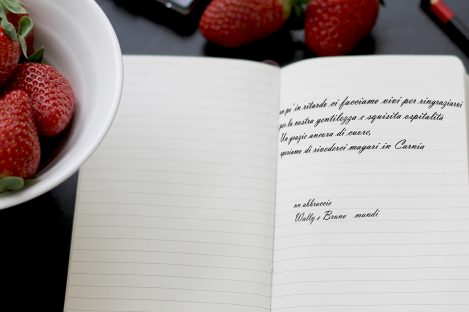 un po' in ritardo ci facciamo vivi per ringraziarvi
per la vostra gentilezza e squisita ospitalità
Un grazie ancora di cuore,
speriamo di rivederci magari in Carnia
un abbraccio
Wally e Bruno mandi